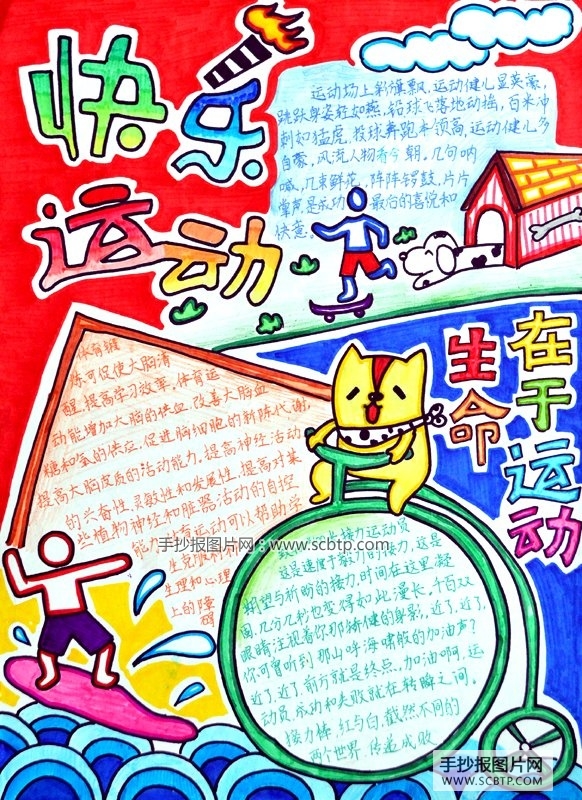 快乐
运动
运动场上彩旗飘,运动健儿显英豪,
跳跃身姿轻如燕,铅球飞落地动摇,百米冲
刺如猛虎,投球舞跑本领高,运动健儿多
自豪,风流人物看今朝。几句呐
喊,几束鲜花,阵阵锣鼓,片片
掌声,是成功 最后的喜悦和
快意。
在于运动
生命
体育锻
炼可促使大脑清
醒,提高学习效率,体育运
动能增加大脑的供血,改善大脑血
糖和氧的供应,促进脑细胞的新陈代谢,
提高大脑皮质的活动能力,提高神经活动
的兴奋性、灵敏性和发展性,提高对某
些植物神经和脏器活动的自控
能力,体育运动可以帮助学
生克服
生理和心理
上的障
碍
手抄报图片网:www.scbtp.com
接力运动员
这是速度于毅力的接力,这是
期望与祈盼的接力,时间在这里凝
固,几分几秒也变得如此漫长。千百双
眼睛注视着你那矫健的身影,近了,近了,
你可曾听到那山呼海啸般的加油声?
近了,近了,前方就是终点,加油啊,运
动员,成功和失败就在转瞬之间。
接力棒,红与白,截然不同的
两个世界,传递成败
手抄报图片网
WWW.SCBTP.COM